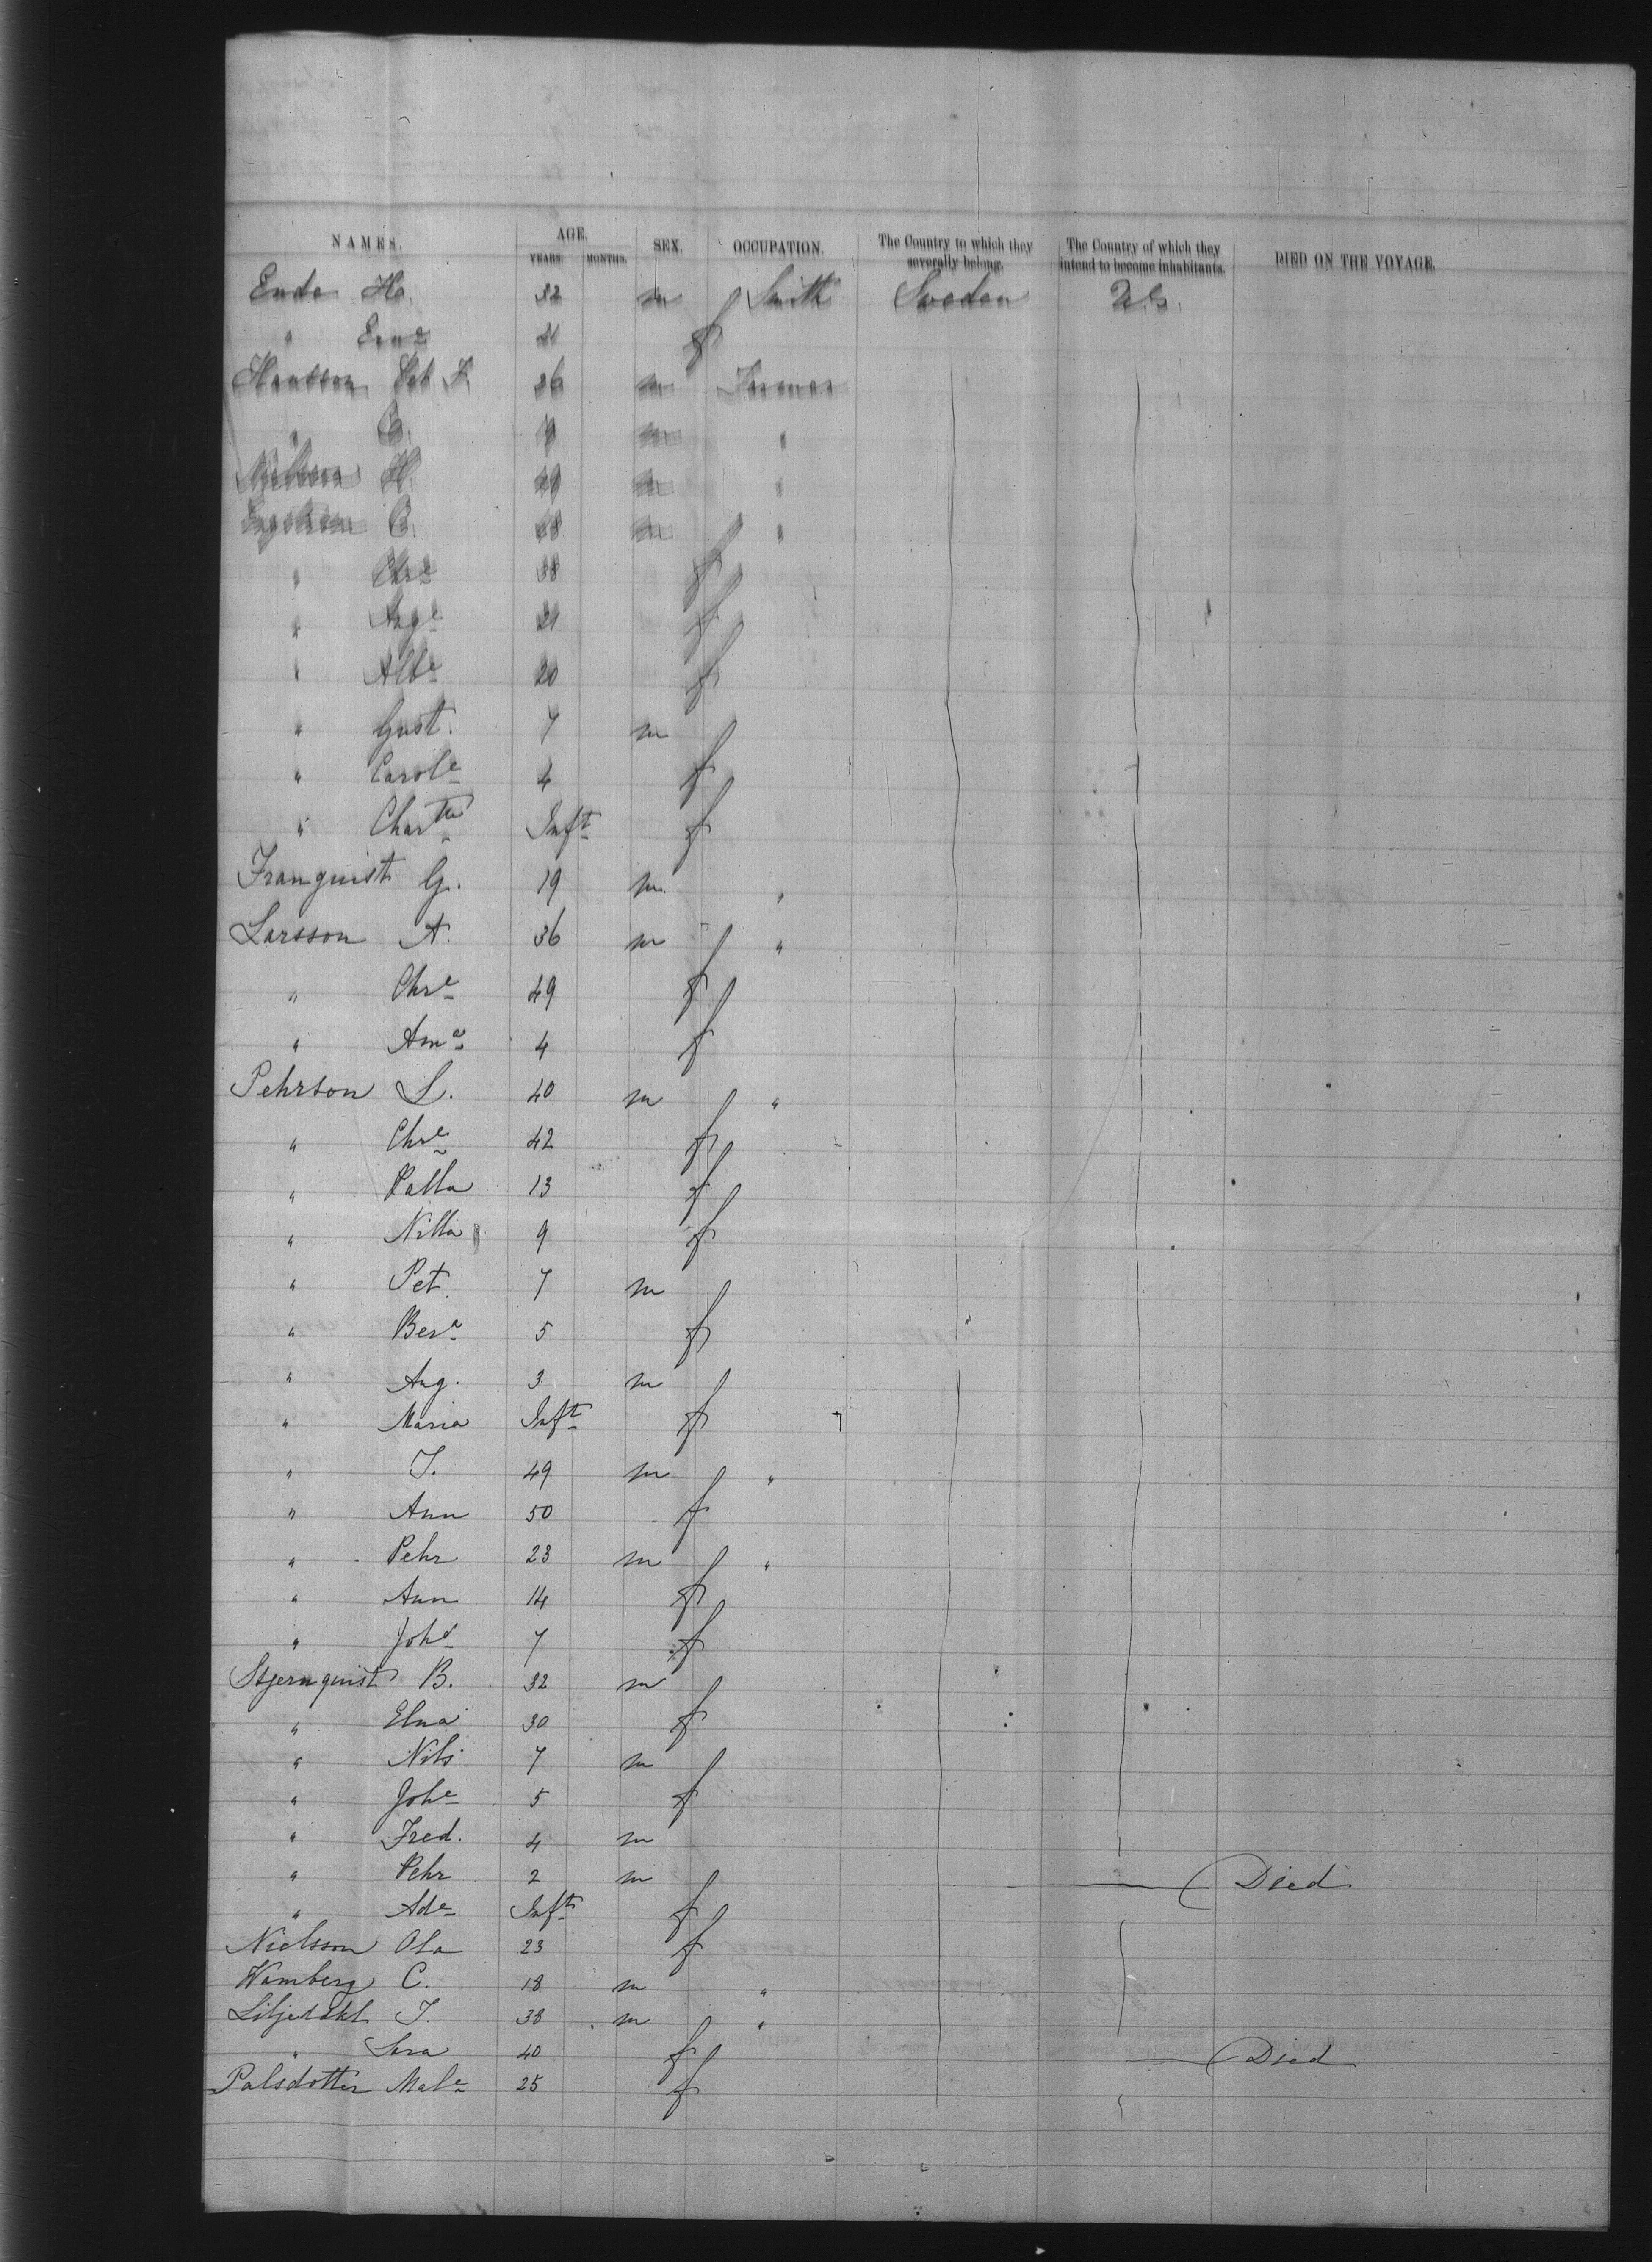 NAMES. AGE. SEX. OCCUPATION. The Country to which they severally belong. The Country of which they intend to become inhabitants. DIED ON THE VOYAGE.
YEARS. MONTHS.
Ende H. 32 m Smith Sweden U.S.
" Erne 21 f
Hansson Pet. F. 36 m Farmer
" C. m "
Nielsson H. 29 m "
Engstrom C. 48 m "
" Chre 38 f
" Auge 21 f
" Albe 20 f
" Gust. 7 m
" Carole 4 f
" Chartte Inft f
Franquist G. 19 m "
Larsson A. 36 m "
" Chre 49 f
" Ama 4 f
Pehrson L. 40 m "
" Chre 42 f
" Palla 13 f
" Nilla 9 f
" Pet. 7 m
" Bera 5 f
" Aug. 3 m
" Maria Inft f
" J. 49 m "
" Ann 50 f
" Pehr 23 m "
" Ann 14 f
" Johe 7 f
Stjernquist B. 32 m
" Elna 30 f
" Nils 7 m
" Johe 5 f
" Fred. 4 m
" Pehr 2 m Died
" Ade Inft f
Nielsson Ola 23 f
Wamberg C. 18 m "
J. 38 m "
" Sara 40 f Died
Palsdotter Male 25 f